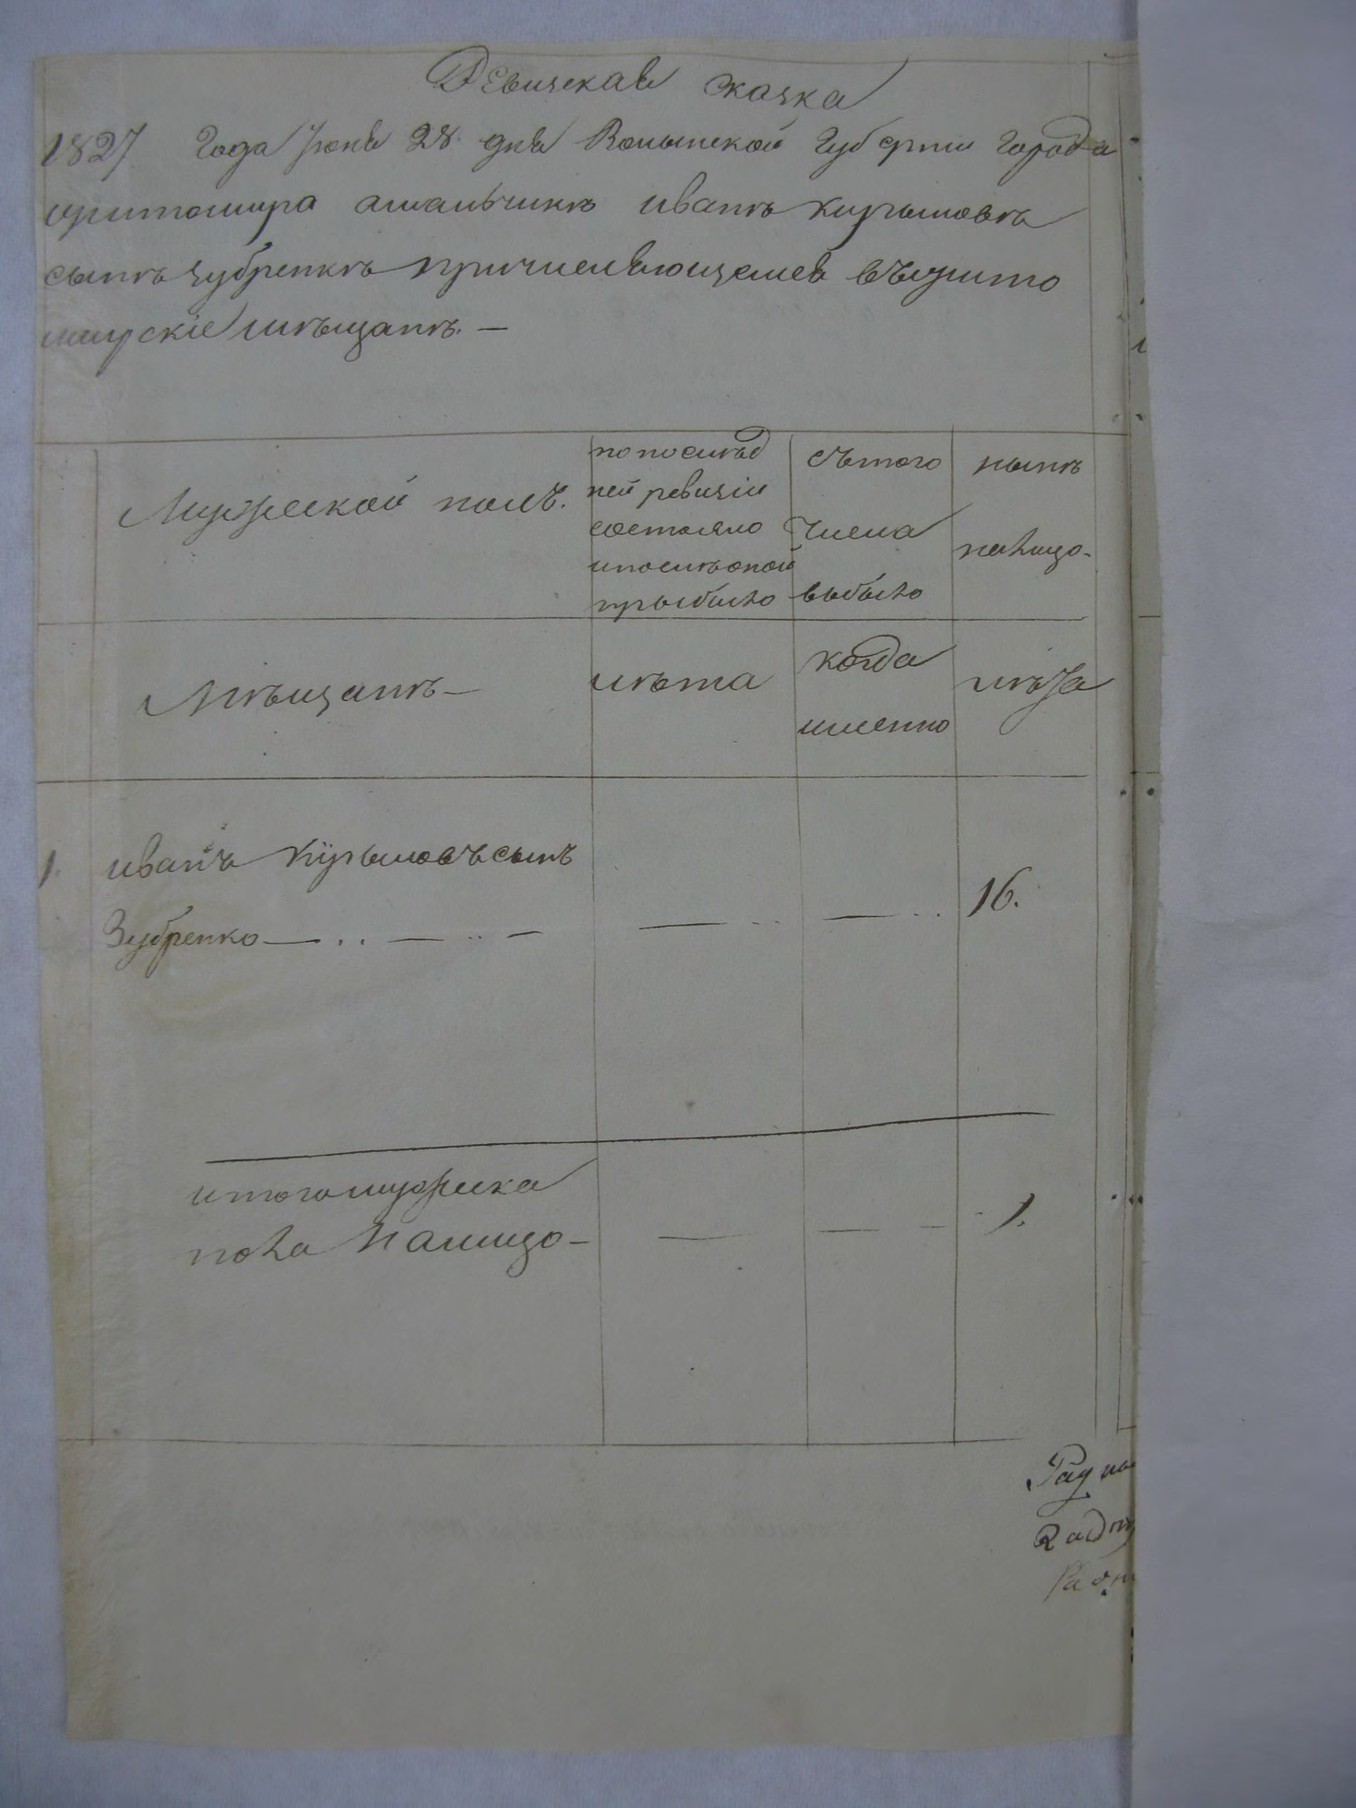 Ревизская сказка
1827 Года Июня 28 дня Волынской Губерни Города
Житомира Иванъ Кирыловъ
сынъ Зубренкъ причисляющемся въ Жито
мирские мещанъ. —
Мужеской полъ.
по послед
ней ревизіи
состояло
и после оной
прыбыло
съ того
Числа
выбыло
ныне
налицо.
Мещане —
лета
когда
именно
лета
1. Иванъ Кирыловъ сынъ
Зубренко — .. — .. — — .. — .. 16.
итого мужеска
пола налицо — — — - - 1.